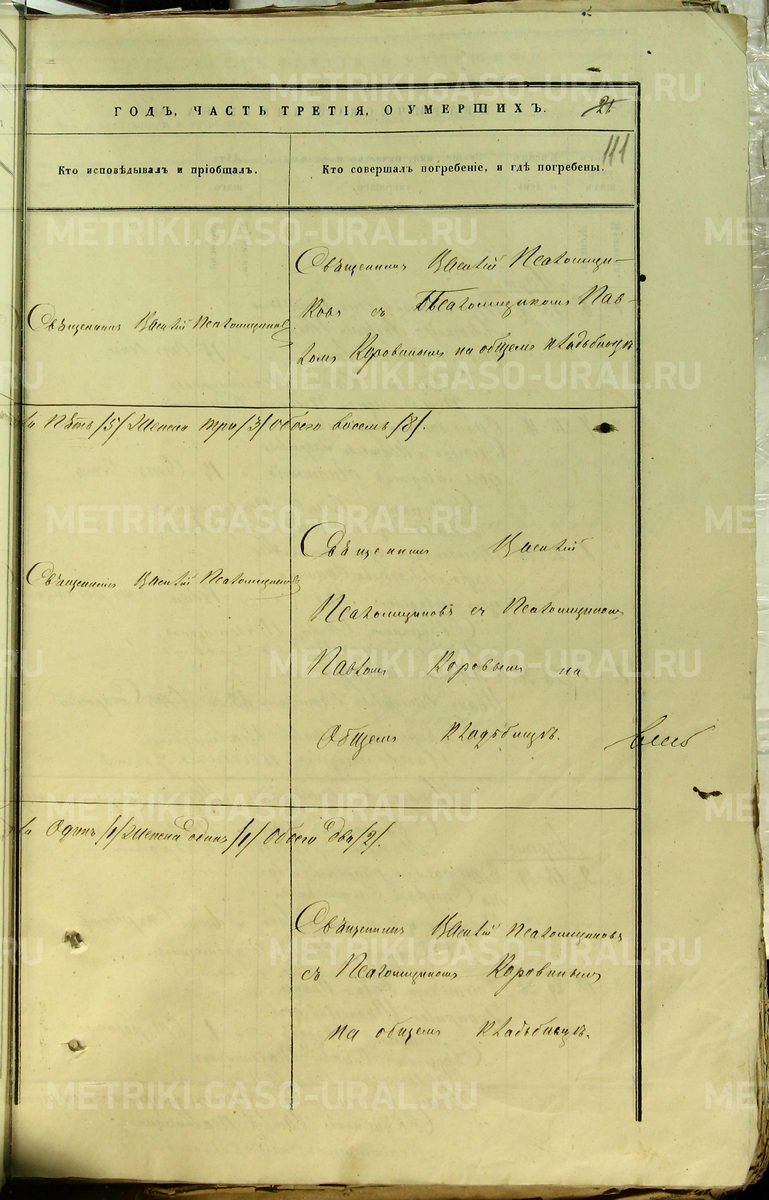 ГОДЪ, ЧАСТЬ ТРЕТІЯ, О УМЕРШИХЪ.
21
111
Кто исповѣдывалъ и пріобщалъ.
Кто совершалъ погребеніе, и гдѣ погребены.
Священникъ Василій Псаломщи-
ковъ съ Псаломщикомъ Пав-
ломъ Коровинымъ на общемъ кладбищѣ
Священникъ Василій Псаломщиковъ
Пять /5/ Женска три /3/ Обоего восемь /8/.
Священникъ Василій
Священникъ Василій Псаломщиковъ
Псаломщиковъ съ Псаломщикомъ
Павломъ Коровинымъ на
Общемъ кладбищѣ.
Одинъ /1/ Женска одинъ /1/ Обоего два /2/.
Священникъ Василій Псаломщиковъ
съ Псаломщикомъ Коровинымъ
на общемъ кладбищѣ.
METRIKI.GASO-URAL.RU